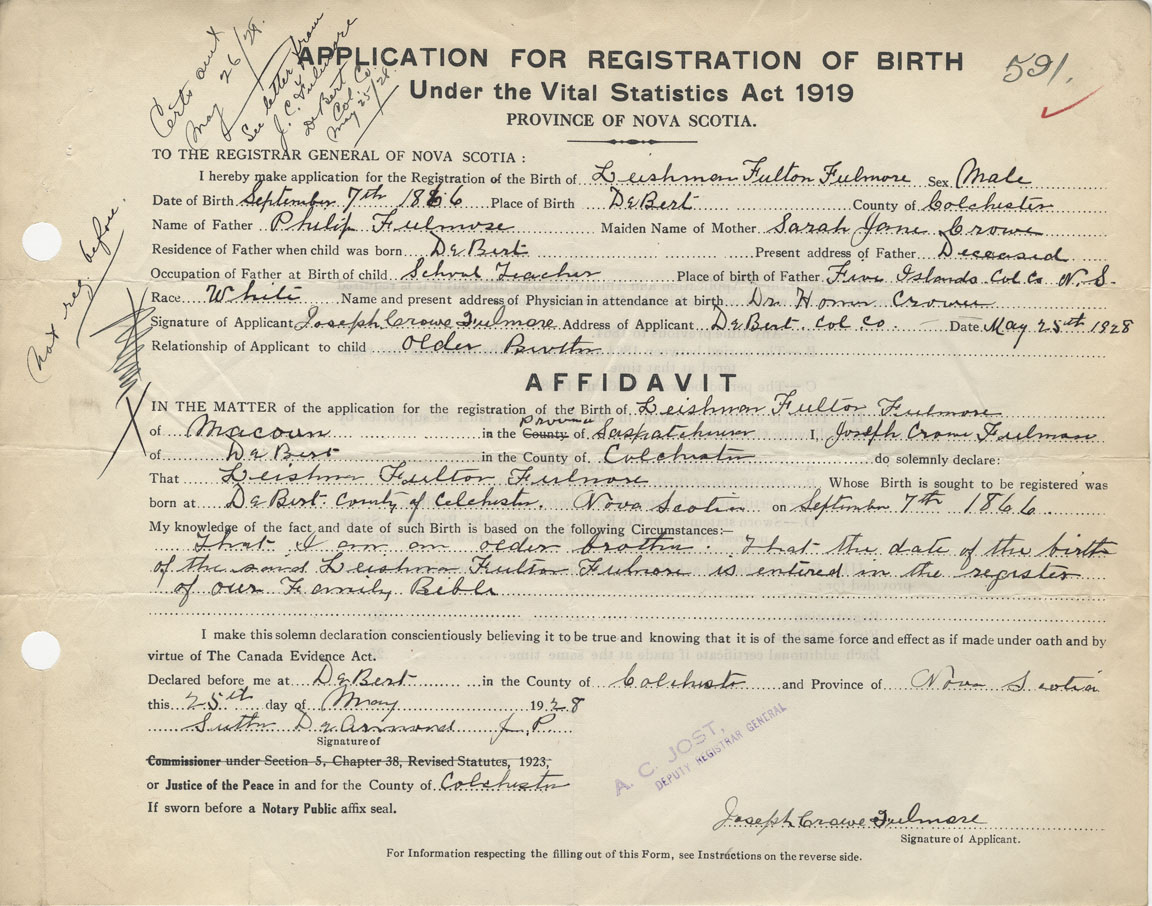 Certs out
May 26/28.
See letter from
J. C. Fulmore
DeBert Co.
Col.
May 25/28.
591.
APPLICATION FOR REGISTRATION OF BIRTH
Under the Vital Statistics Act 1919
PROVINCE OF NOVA SCOTIA.
TO THE REGISTRAR GENERAL OF NOVA SCOTIA :
I hereby make application for the Registration of the Birth of Leishman Fulton Fulmore Sex Male
Date of Birth September 7th 1866 Place of Birth DeBert County of Colchester
Name of Father Philip Fulmore Maiden Name of Mother Sarah Jane Crowe
Residence of Father when child was born DeBert Present address of Father Deceased
Occupation of Father at Birth of child School Teacher Place of birth of Father Five Islands Col Co. N. S.
Race White Name and present address of Physician in attendance at birth Dr Crowe
Signature of Applicant Joseph Crowe Fulmore Address of Applicant DeBert Col Co. Date May 25th 1928
Relationship of Applicant to child Older Brother
Not reg. before.
AFFIDAVIT
IN THE MATTER of the application for the registration of the Birth of Leishman Fulton Fulmore
of Macoun in the County Province of Saskatchewan I, Joseph Crowe Fulmore
of DeBert in the County of Colchester do solemnly declare:
That Leishman Fulton Fulmore Whose Birth is sought to be registered was
born at DeBert County of Colchester. Nova Scotia on September 7th 1866.
My knowledge of the fact and date of such Birth is based on the following Circumstances:—
That I am an older brother. That the date of the birth
of the said Leishman Fulton Fulmore is entered in the register
of our Family Bible
I make this solemn declaration conscientiously believing it to be true and knowing that it is of the same force and effect as if made under oath and by
virtue of The Canada Evidence Act.
Declared before me at DeBert in the County of Colchester and Province of Nova Scotia
this 25th day of May 1928
DeArmond J. P.
Signature of
Commissioner under Section 5, Chapter 38, Revised Statutes, 1923,
or Justice of the Peace in and for the County of Colchester
If sworn before a Notary Public affix seal.
A. C. JOST,
DEPUTY REGISTRAR GENERAL
Joseph Crowe Fulmore
Signature of Applicant.
For Information respecting the filling out of this Form, see Instructions on the reverse side.